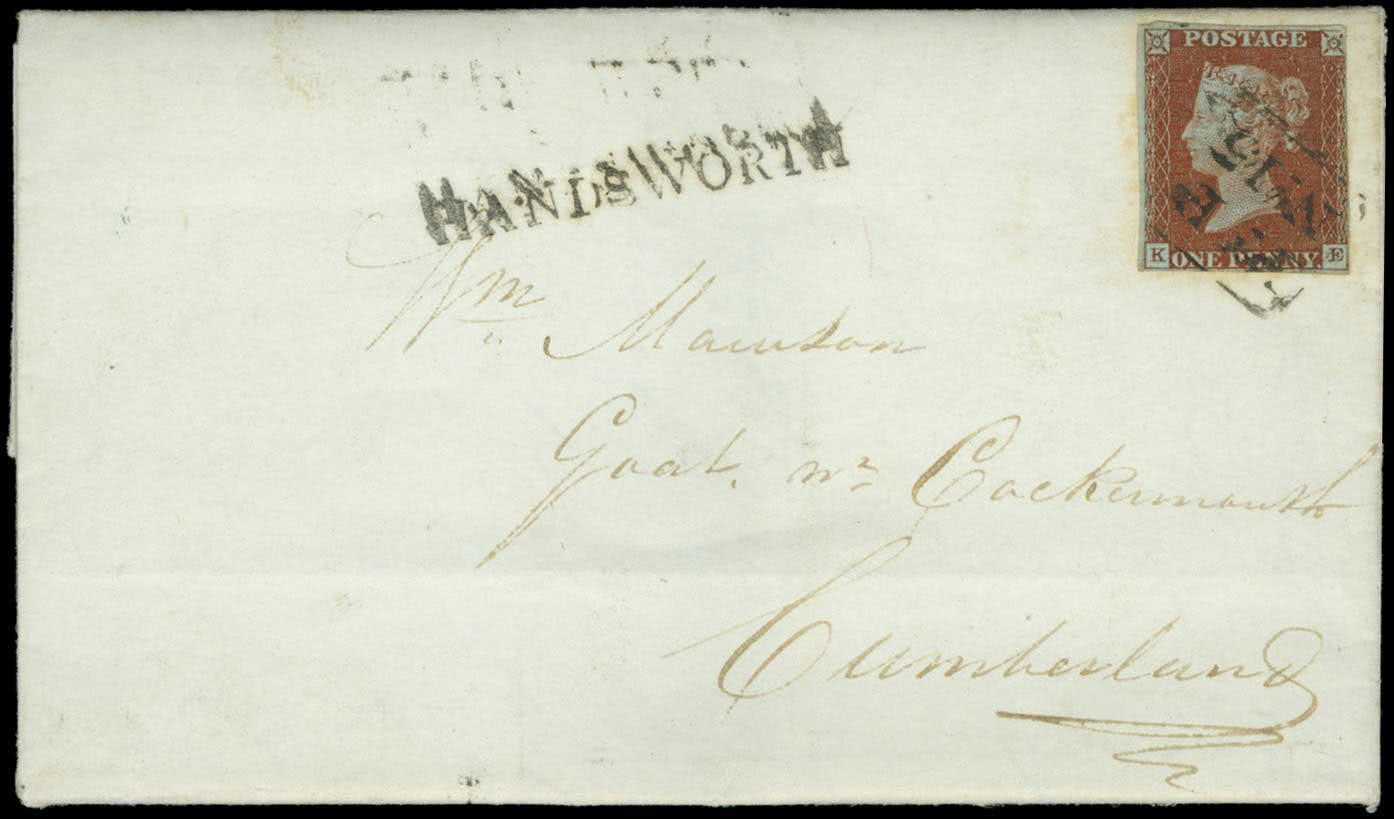 POSTAGE
HANDSWORTH
K ONE PENNY. E
Wm Mawson
Goat. nr Cockermouth
Cumberland